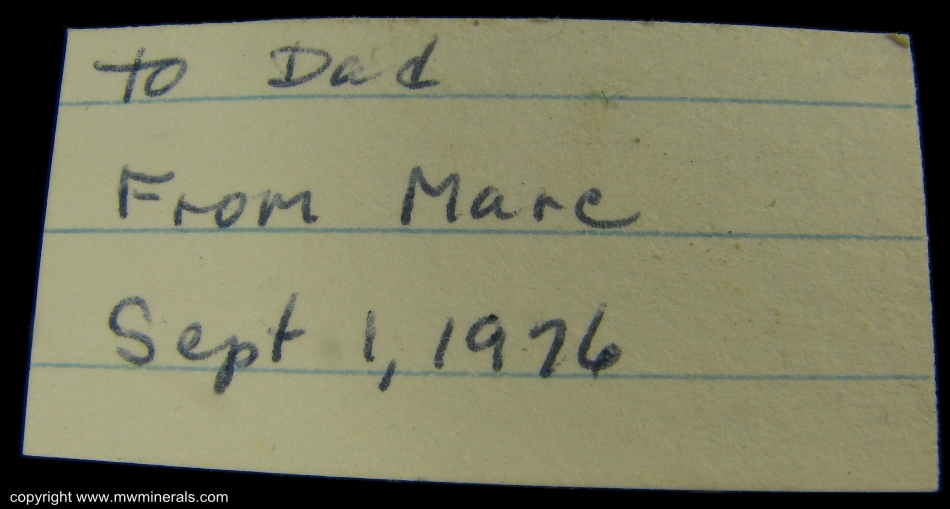 To Dad
From Marc
Sept 1, 1976
copyright www.mwminerals.com